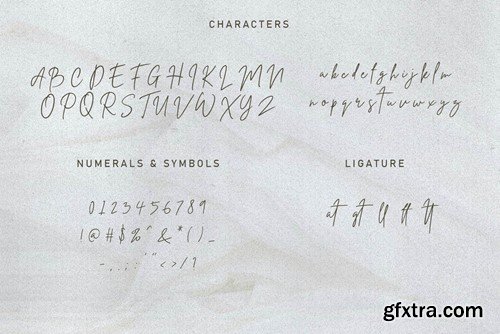 CHARACTERS
A B C D E F G H I K L M N
O P Q R S T U V W X Y Z
a b c d e f g h i j k l m
n o p q r s t u v w x y z
NUMERALS & SYMBOLS
0 1 2 3 4 5 6 7 8 9
! @ # $ % ^ & * ( ) _
LIGATURE
at gt ll ft tt
gfxtra.com